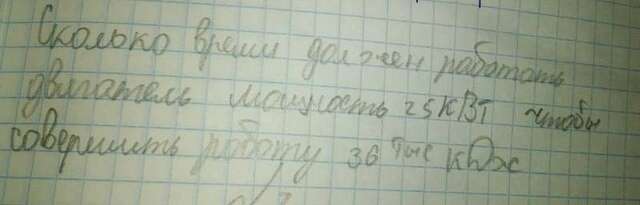 Сколько время должен работать
двигатель мощность 25 КВТ чтобы
совершить работу 36 тыс кДж